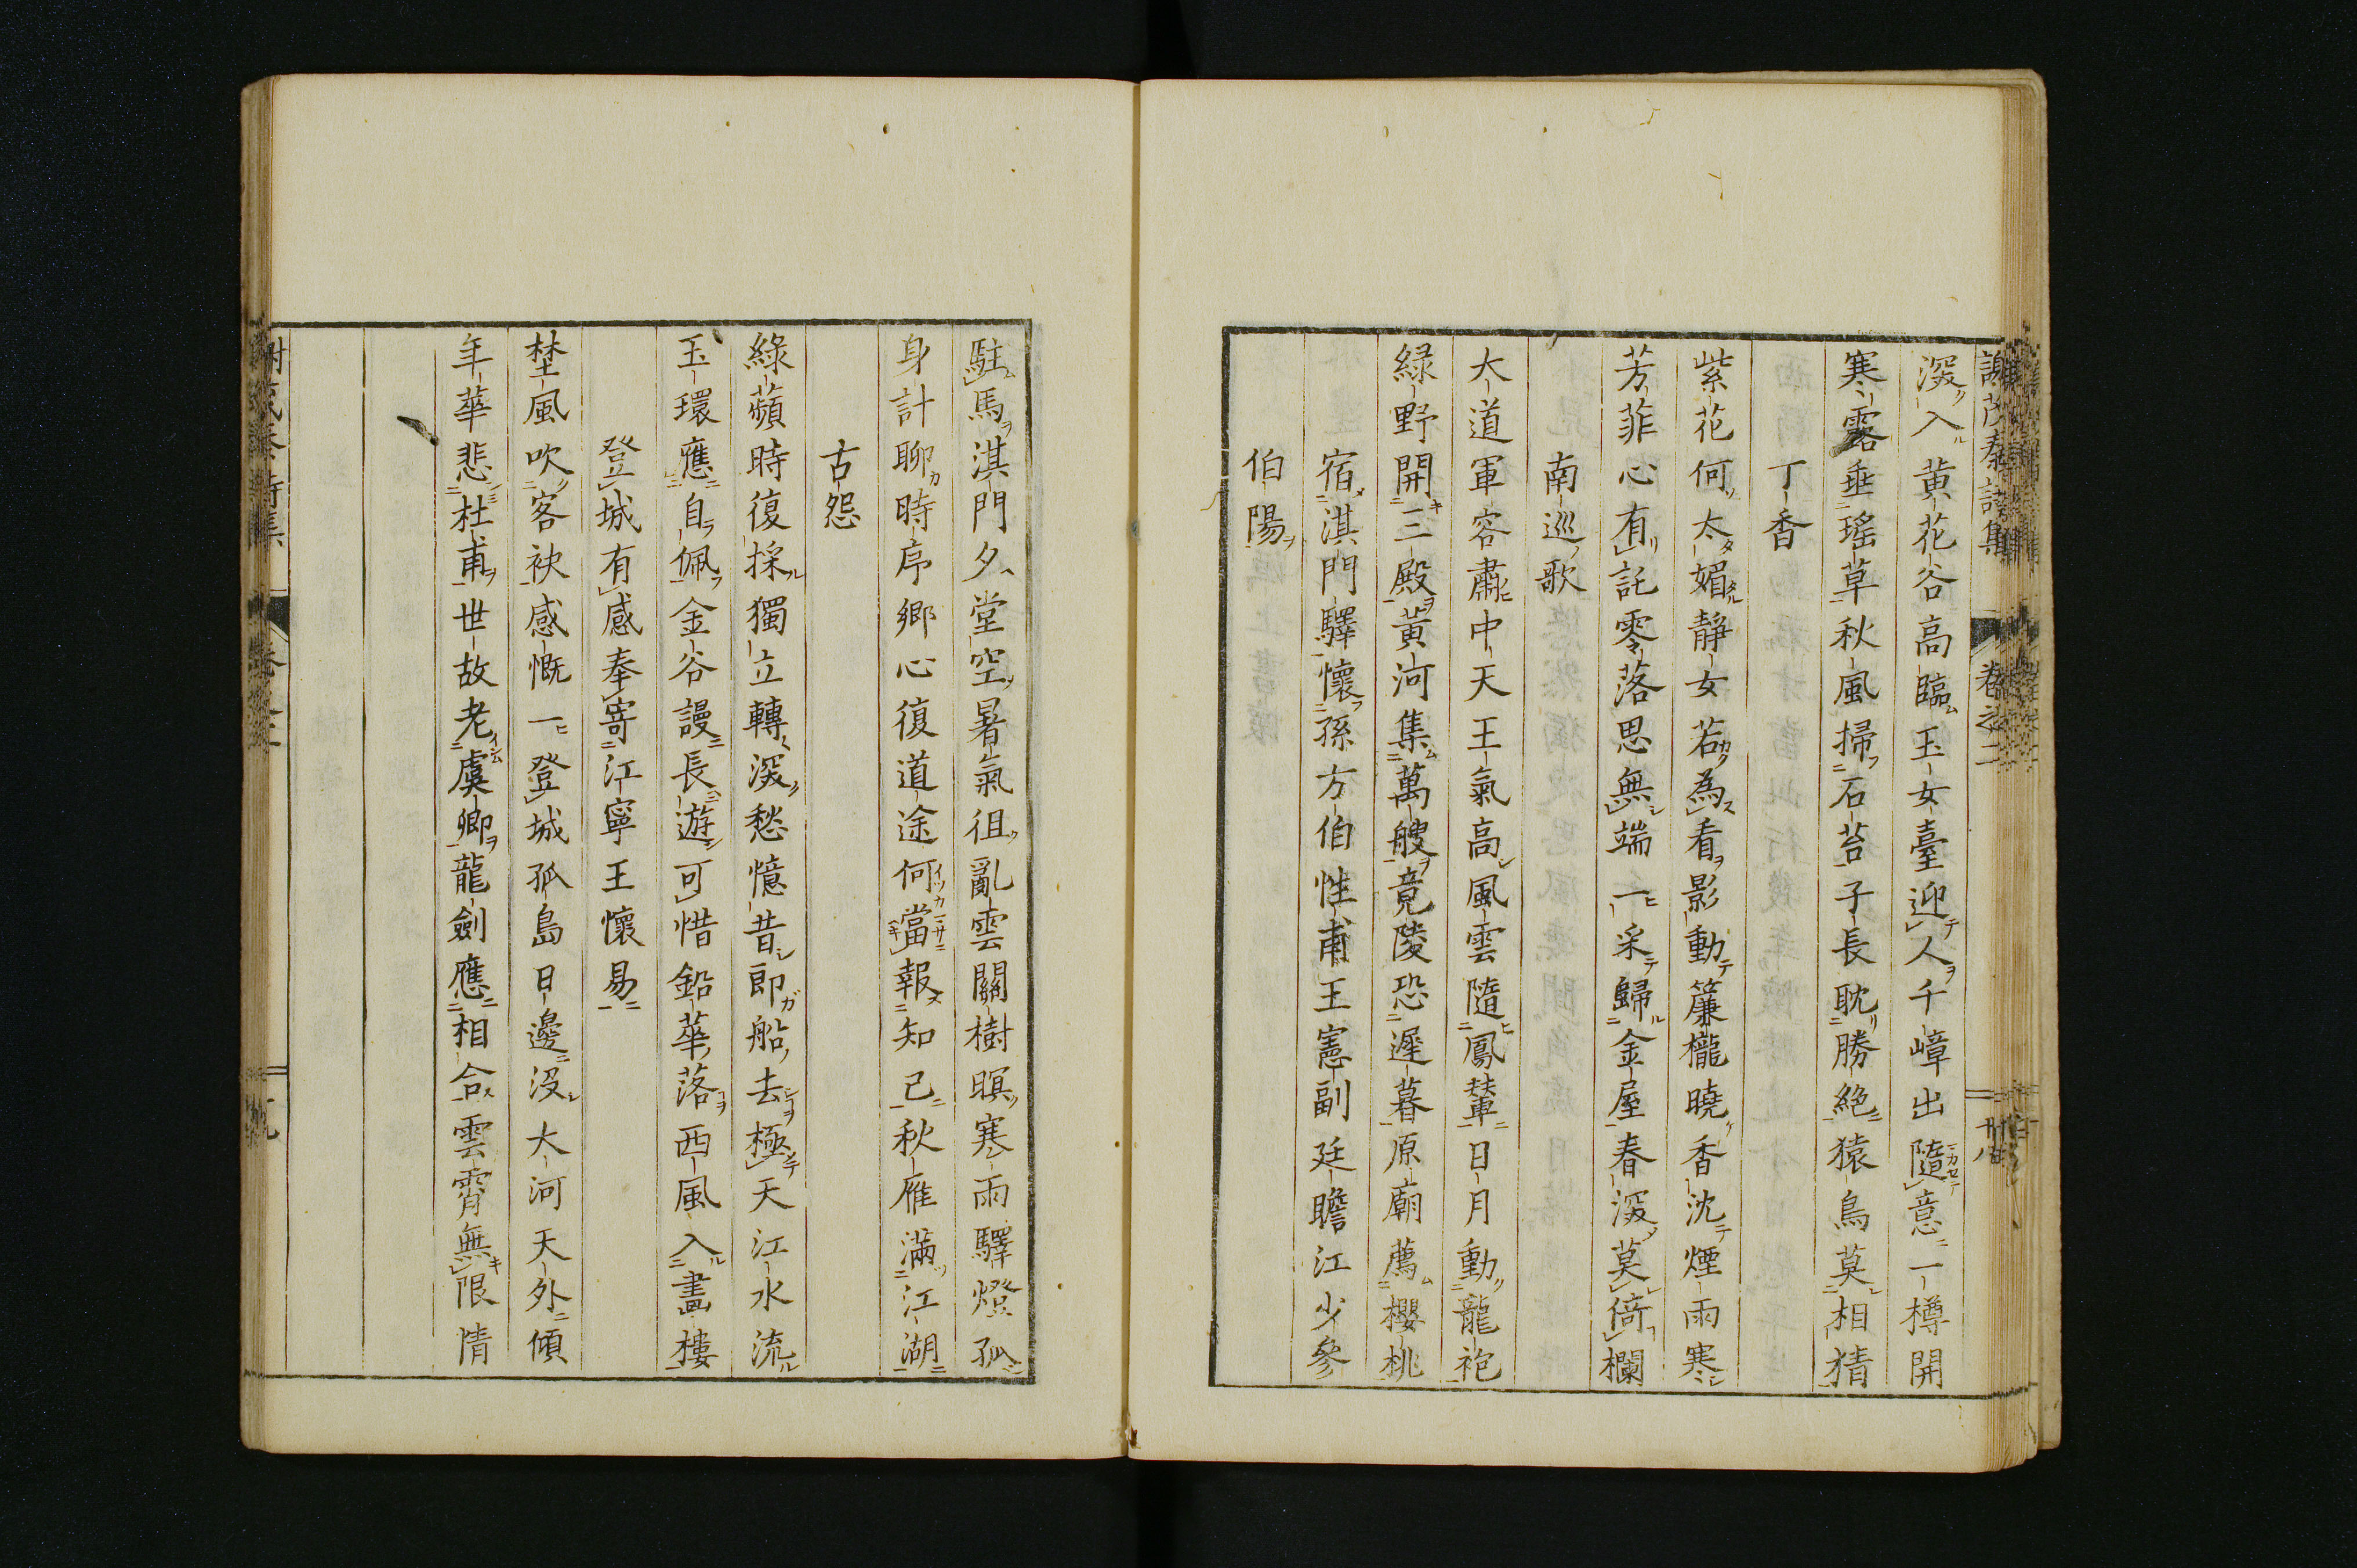 謝茂秦詩集 卷之二 廿八
深入黄花谷高臨玉女臺迎人千嶂出隨意一樽開
寒露垂瑤草秋風掃石苔子長耽勝絶猿鳥莫相猜
丁香
紫花何太媚靜女若為看影動簾櫳曉香沈煙雨寒
芳菲心有託零落思無端一采歸金屋春深莫倚欄
南巡歌
大道軍容肅中天王氣高風雲隨鳳輦日月動龍袍
緑野開三殿黄河集萬艘竟陵恐遲暮原廟薦櫻桃
宿淇門驛懷孫方伯性甫王憲副廷瞻江少參
伯陽
駐馬淇門夕堂空暑氣徂亂雲關樹暝寒雨驛燈孤
身計聊時序郷心復道途何當報知己秋雁滿江湖
古怨
綠蘋時復採獨立轉深愁憶昔郎船去極天江水流
玉環應自佩金谷謾長遊可惜鉛華落西風入畫樓
登城有感奉寄江寧王懷易
埜風吹客袂感慨一登城孤島日邊沒大河天外傾
年華悲杜甫世故老虞卿龍劍應相合雲霄無限情